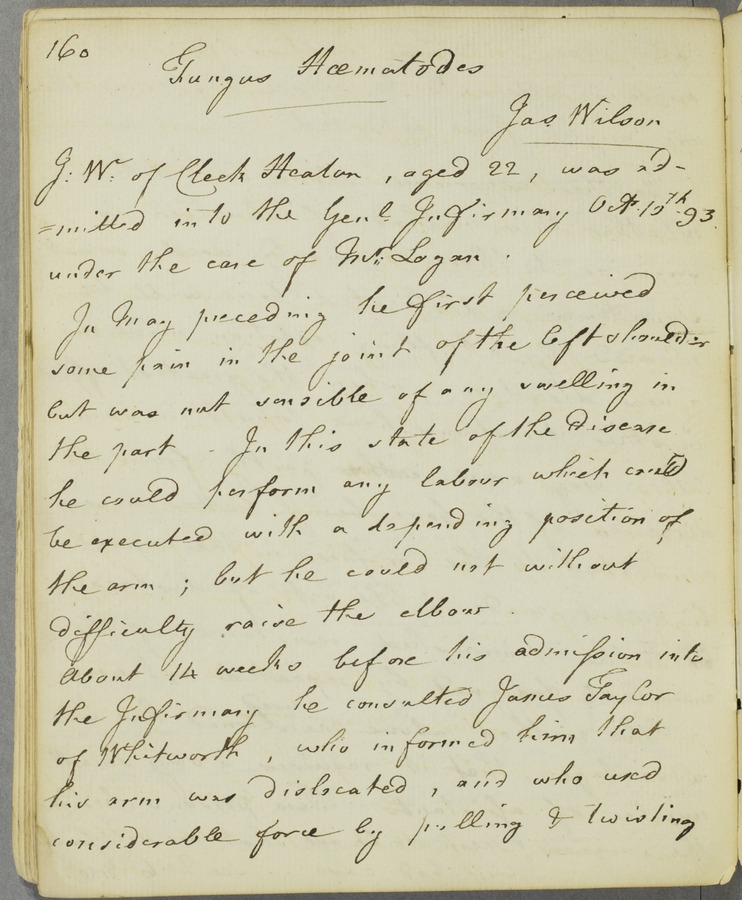 160
Fungus Hæmatodes
Jas. Wilson
J: W. of Cleck Heaton, aged 22, was ad-
=mitted into the Genl. Infirmary Oct. 10th 93.
under the care of Mr. Logan.
In May preceding he first perceived
some pain in the joint of the left shoulder
but was not sensible of any swelling in
the part. In this state of the disease
he could perform any labour which could
be executed with a depending position of
the arm; but he could not without
difficulty raise the elbow.
About 14 weeks before his admission into
the Infirmary he consulted James Taylor
of Whitworth, who informed him that
his arm was dislocated, and who used
considerable force by pulling & twisting